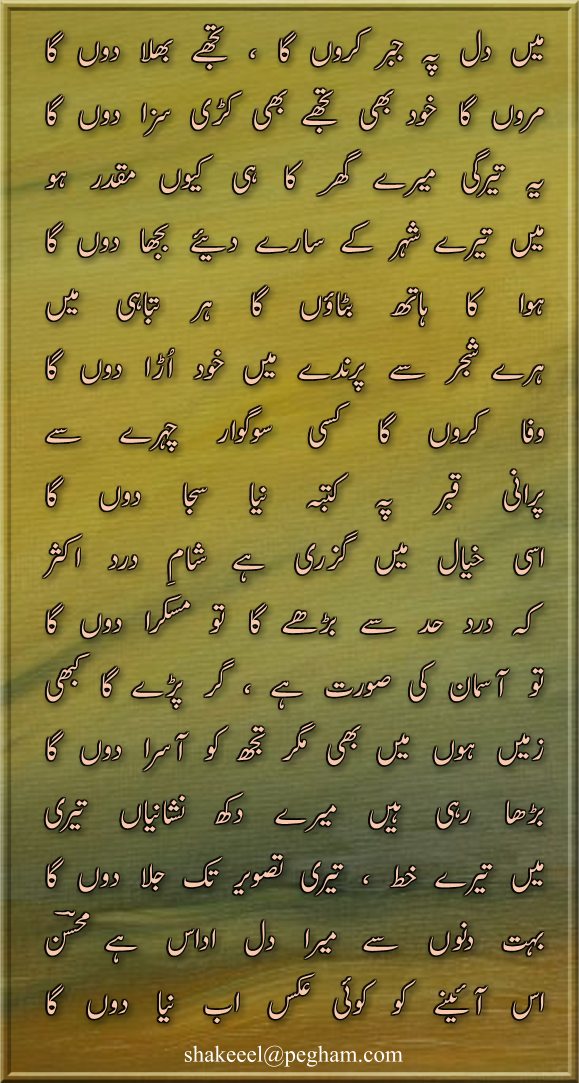 میں دل پہ جبر کروں گا ، تجھے بھلا دوں گا
مروں گا خود بھی تجھے بھی کڑی سزا دوں گا
یہ تیرگی میرے گھر کا ہی کیوں مقدر ہو
میں تیرے شہر کے سارے دیئے بجھا دوں گا
ہوا کا ہاتھ بٹاؤں گا ہر تباہی میں
ہرے شجر سے پرندے میں خود اُڑا دوں گا
وفا کروں گا کسی سوگوار چہرے سے
پرانی قبر پہ کتبہ نیا سجا دوں گا
اسی خیال میں گزری ہے شامِ درد اکثر
کہ درد حد سے بڑھے گا تو مسکرا دوں گا
تو آسمان کی صورت ہے ، گر پڑے گا کبھی
زمیں ہوں میں بھی مگر تجھ کو آسرا دوں گا
بڑھا رہی ہیں میرے دکھ نشانیاں تیری
میں تیرے خط ، تیری تصویر تک جلا دوں گا
بہت دنوں سے میرا دل اداس ہے محسنؔ
اس آئینے کو کوئی عکس اب نیا دوں گا
shakeeel@pegham.com